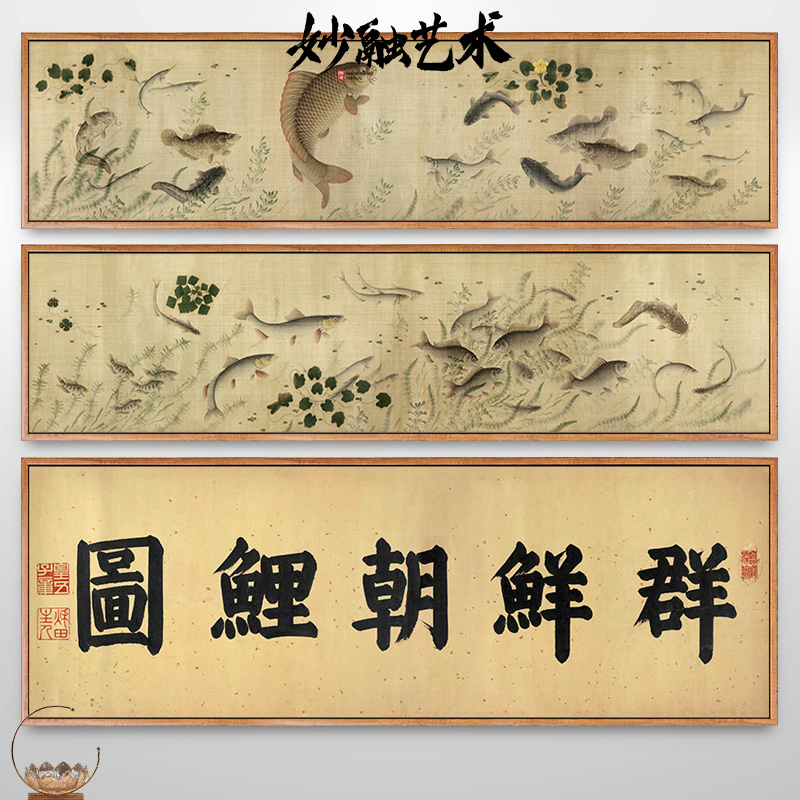 妙融艺术
群鮮朝鯉圖